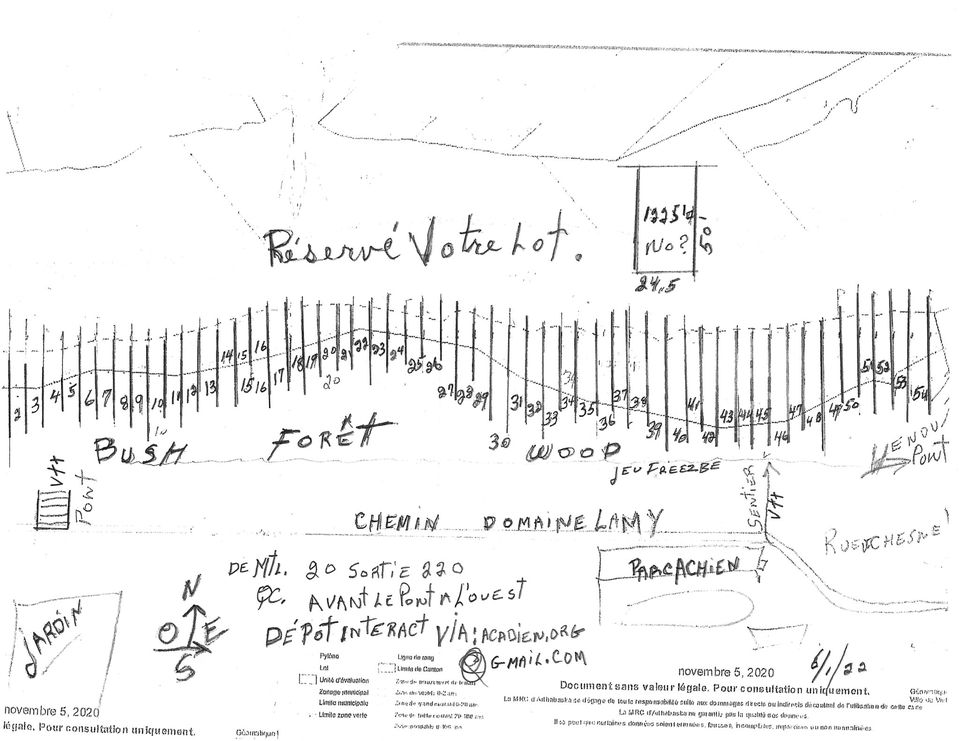 Réservé Votre Lot.
1225 ¼
No?
50
24.5
14 15 16 18 19 20 21 22 23 24 25 26
2 3 4 5 6 7 8 9 10 11 12 13 15 16 17 20
27 28 29 30 31 32 33 34 34 35 36 37 38 39 40 41 42 43 44 45 46 47 48 49 50 51 52 53 54
10
BUSH FORÊT WOOD
JEU FREEZBE
PONT
VTT
PONT
SENTIER
VTT
CHEMIN DOMAINE LAMY
DE MTL. 20 SORTIE 220
QC. AVANT LE PONT A L'OUEST
DÉPOT INTERACT VIA: ACADIEN.ORG
@GMAIL.COM
PARC A CHIEN
JARDIN
N
O E
S
Pylône
Lot
Unité d'évaluation
Zonage municipal
Limite municipale
Limite zone verte
Ligne de rang
Limite de Canton
novembre 5, 2020
6/1/22
Document sans valeur légale. Pour consultation uniquement.
La MRC d'Arthabaska se dégage de toute responsabilité suite aux dommages directs ou indirects découlant de l'utilisation de cette carte
La MRC d'Arthabaska ne garantie pas la qualité des données.
Il se peut que certaines données soient erronées, fausses, incomplètes, imprécises ou non mentionnées.
novembre 5, 2020
légale. Pour consultation uniquement.